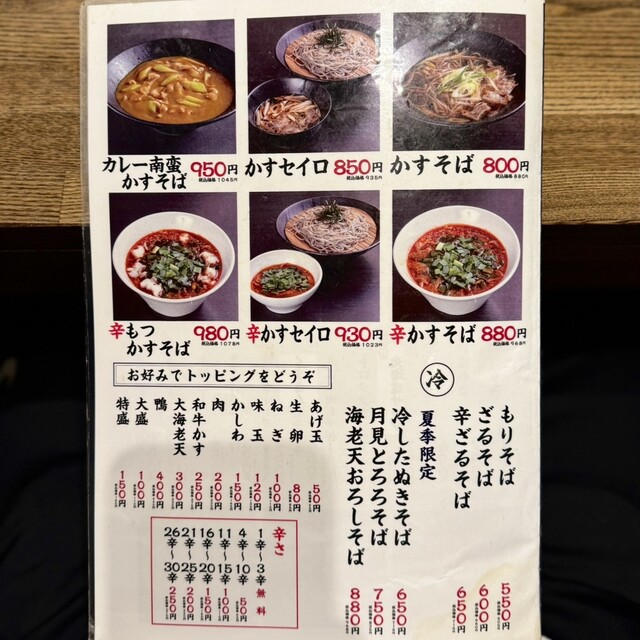 カレー南蛮
かすそば
950円
税込価格 1045円
かすセイロ
850円
税込価格 935円
かすそば
800円
税込価格 880円
辛もつ
かすそば
980円
税込価格 1078円
辛かすセイロ
930円
税込価格 1023円
辛かすそば
880円
税込価格 968円
お好みでトッピングをどうぞ
あげ玉 50円
生卵 80円
ねぎ 100円
味玉 120円
かしわ 150円
肉 200円
和牛かす 250円
大海老天 300円
鴨 400円
大盛 100円
特盛 150円
辛さ
1辛〜3辛 無料
4辛〜10辛 50円
11辛〜15辛 100円
16辛〜20辛 150円
21辛〜25辛 200円
26辛〜30辛 250円
冷
もりそば 550円
ざるそば 600円
辛ざるそば 650円
夏季限定
冷したぬきそば 650円
月見とろろそば 750円
海老天おろしそば 880円